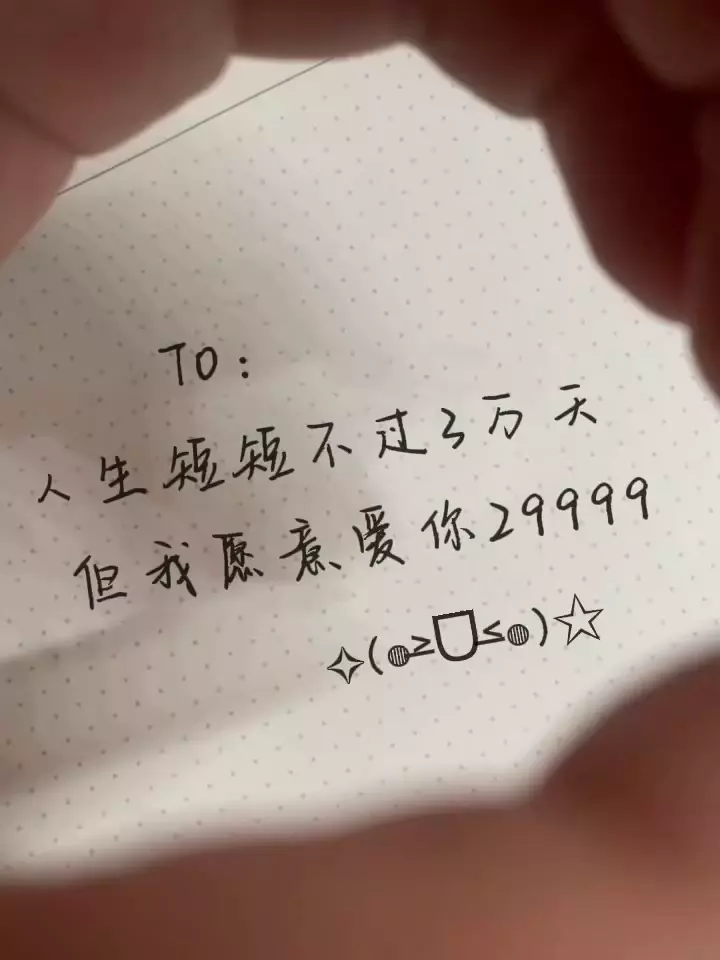 TO:
人生短短不过3万天
但我愿意爱你29999
✧(◍≥U≤◍)☆